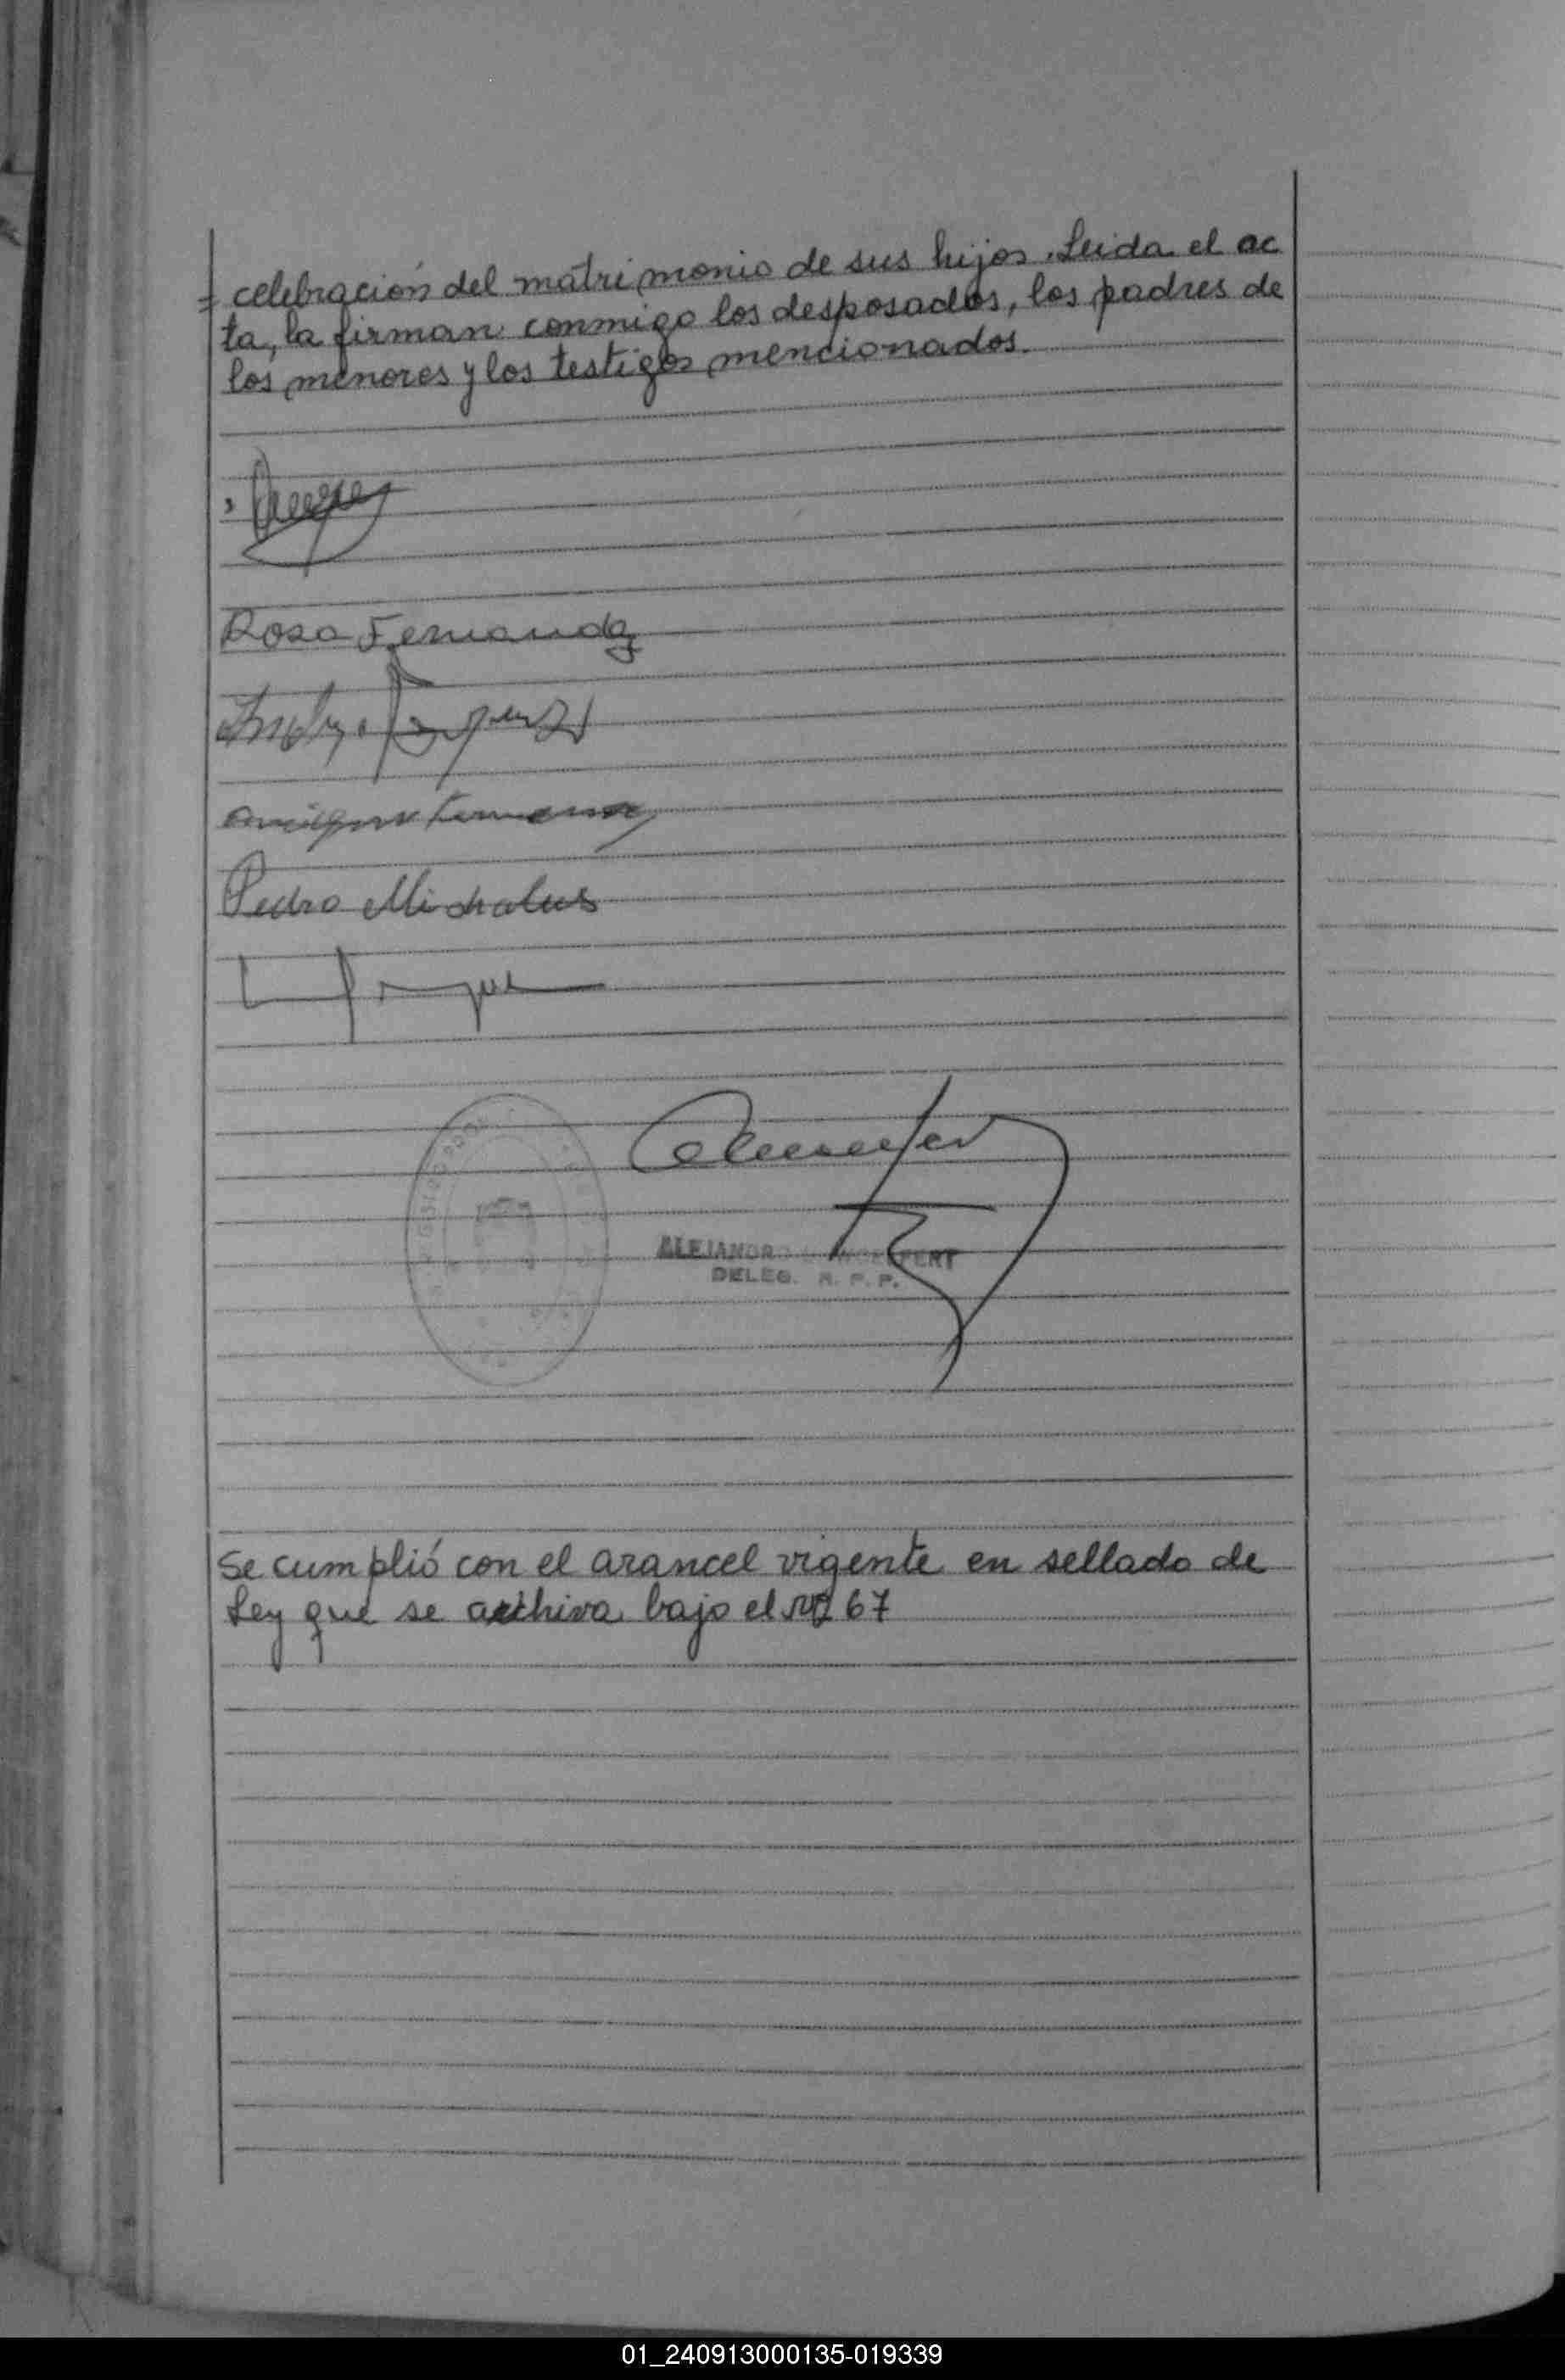 = celebración del matrimonio de sus hijos. Leida el ac
ta, la firman conmigo los desposados, los padres de
los menores y los testigos mencionados.
Rosa Fernandez
Pedro Michalus
ALEJANDRO
DELEG. R. P. P.
Se cumplió con el arancel vigente en sellado de
Ley que se archiva bajo el Nº 67
01_240913000135-019339